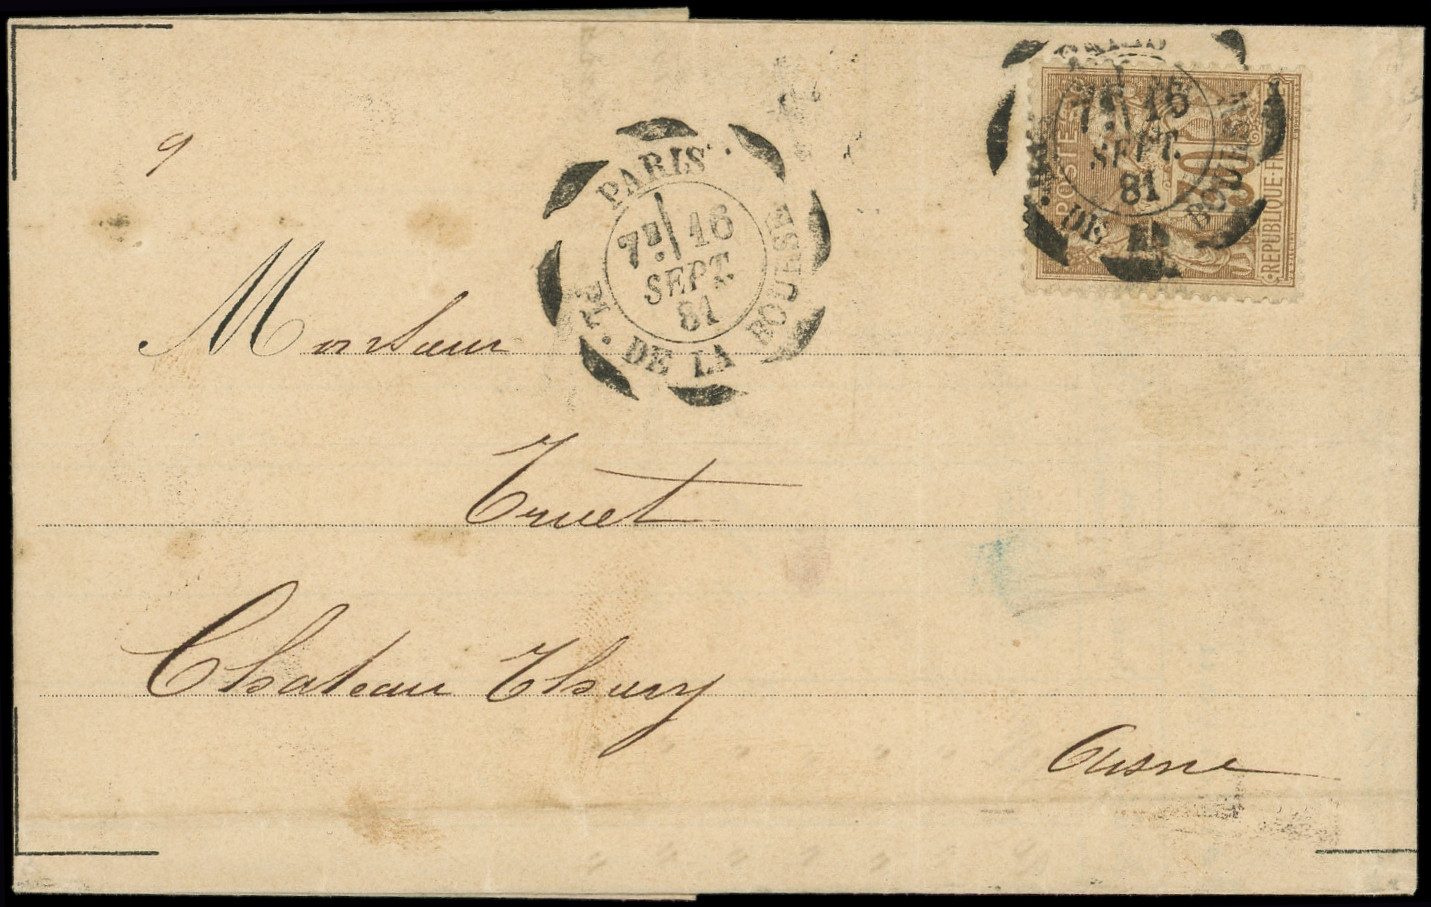 9
PARIS
7E 16
SEPT.
81
PL. DE LA BOURSE
PARIS
7E 16
SEPT.
81
PL. DE LA BOURSE
POSTES
30
REPUBLIQUE-FR
Monsieur
Truet
Chateau Thierry
Aisne